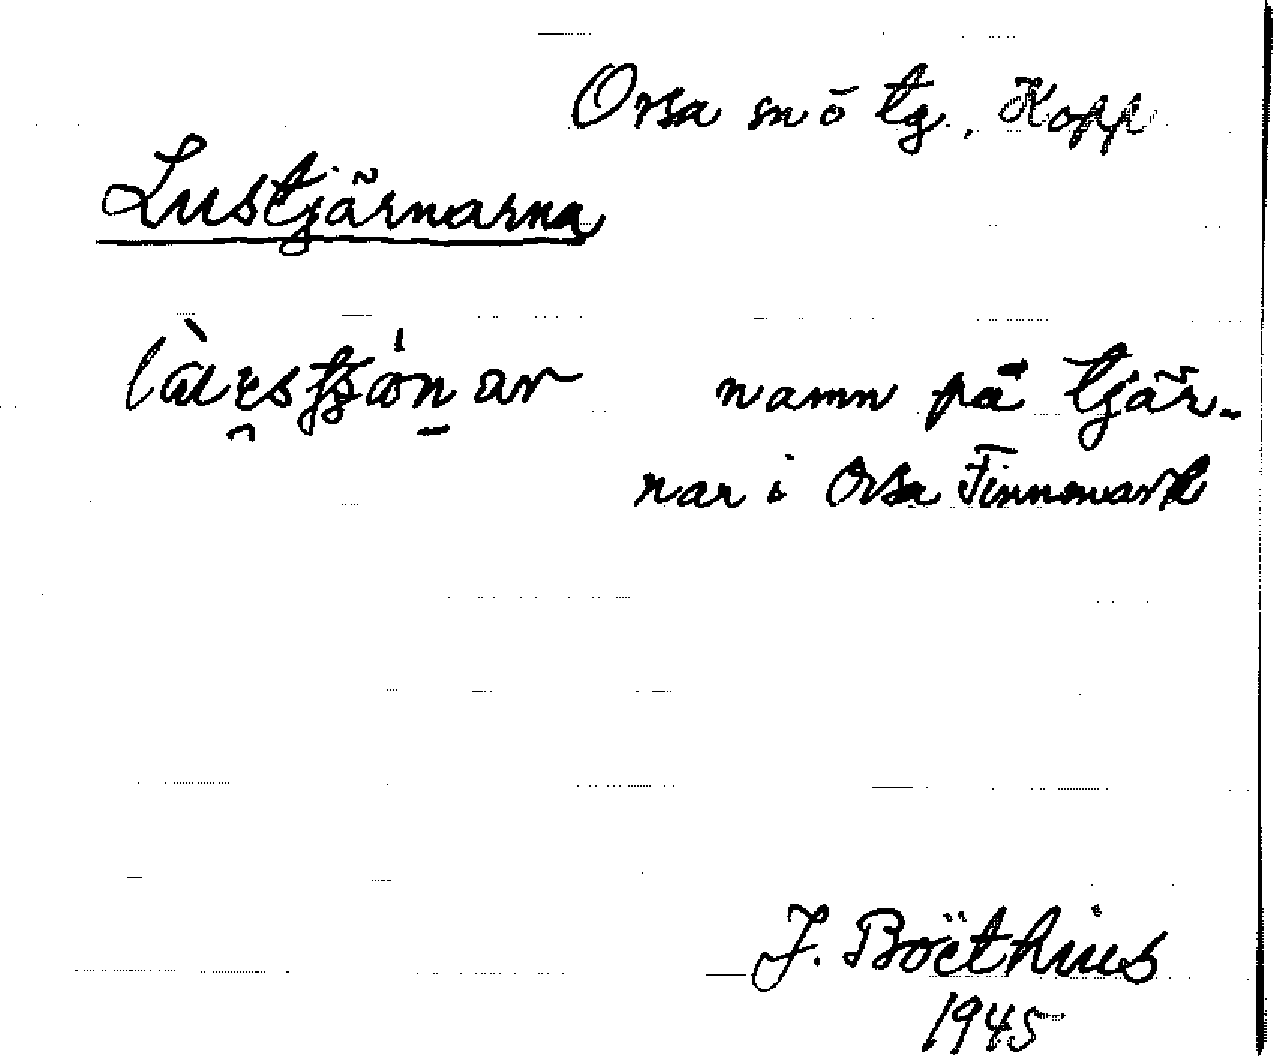 Orsa sn ö tg, Kopp
Lustjärnarna
namn på tjär-
nar i Orsa Finnmark
J. Boëthius
1945